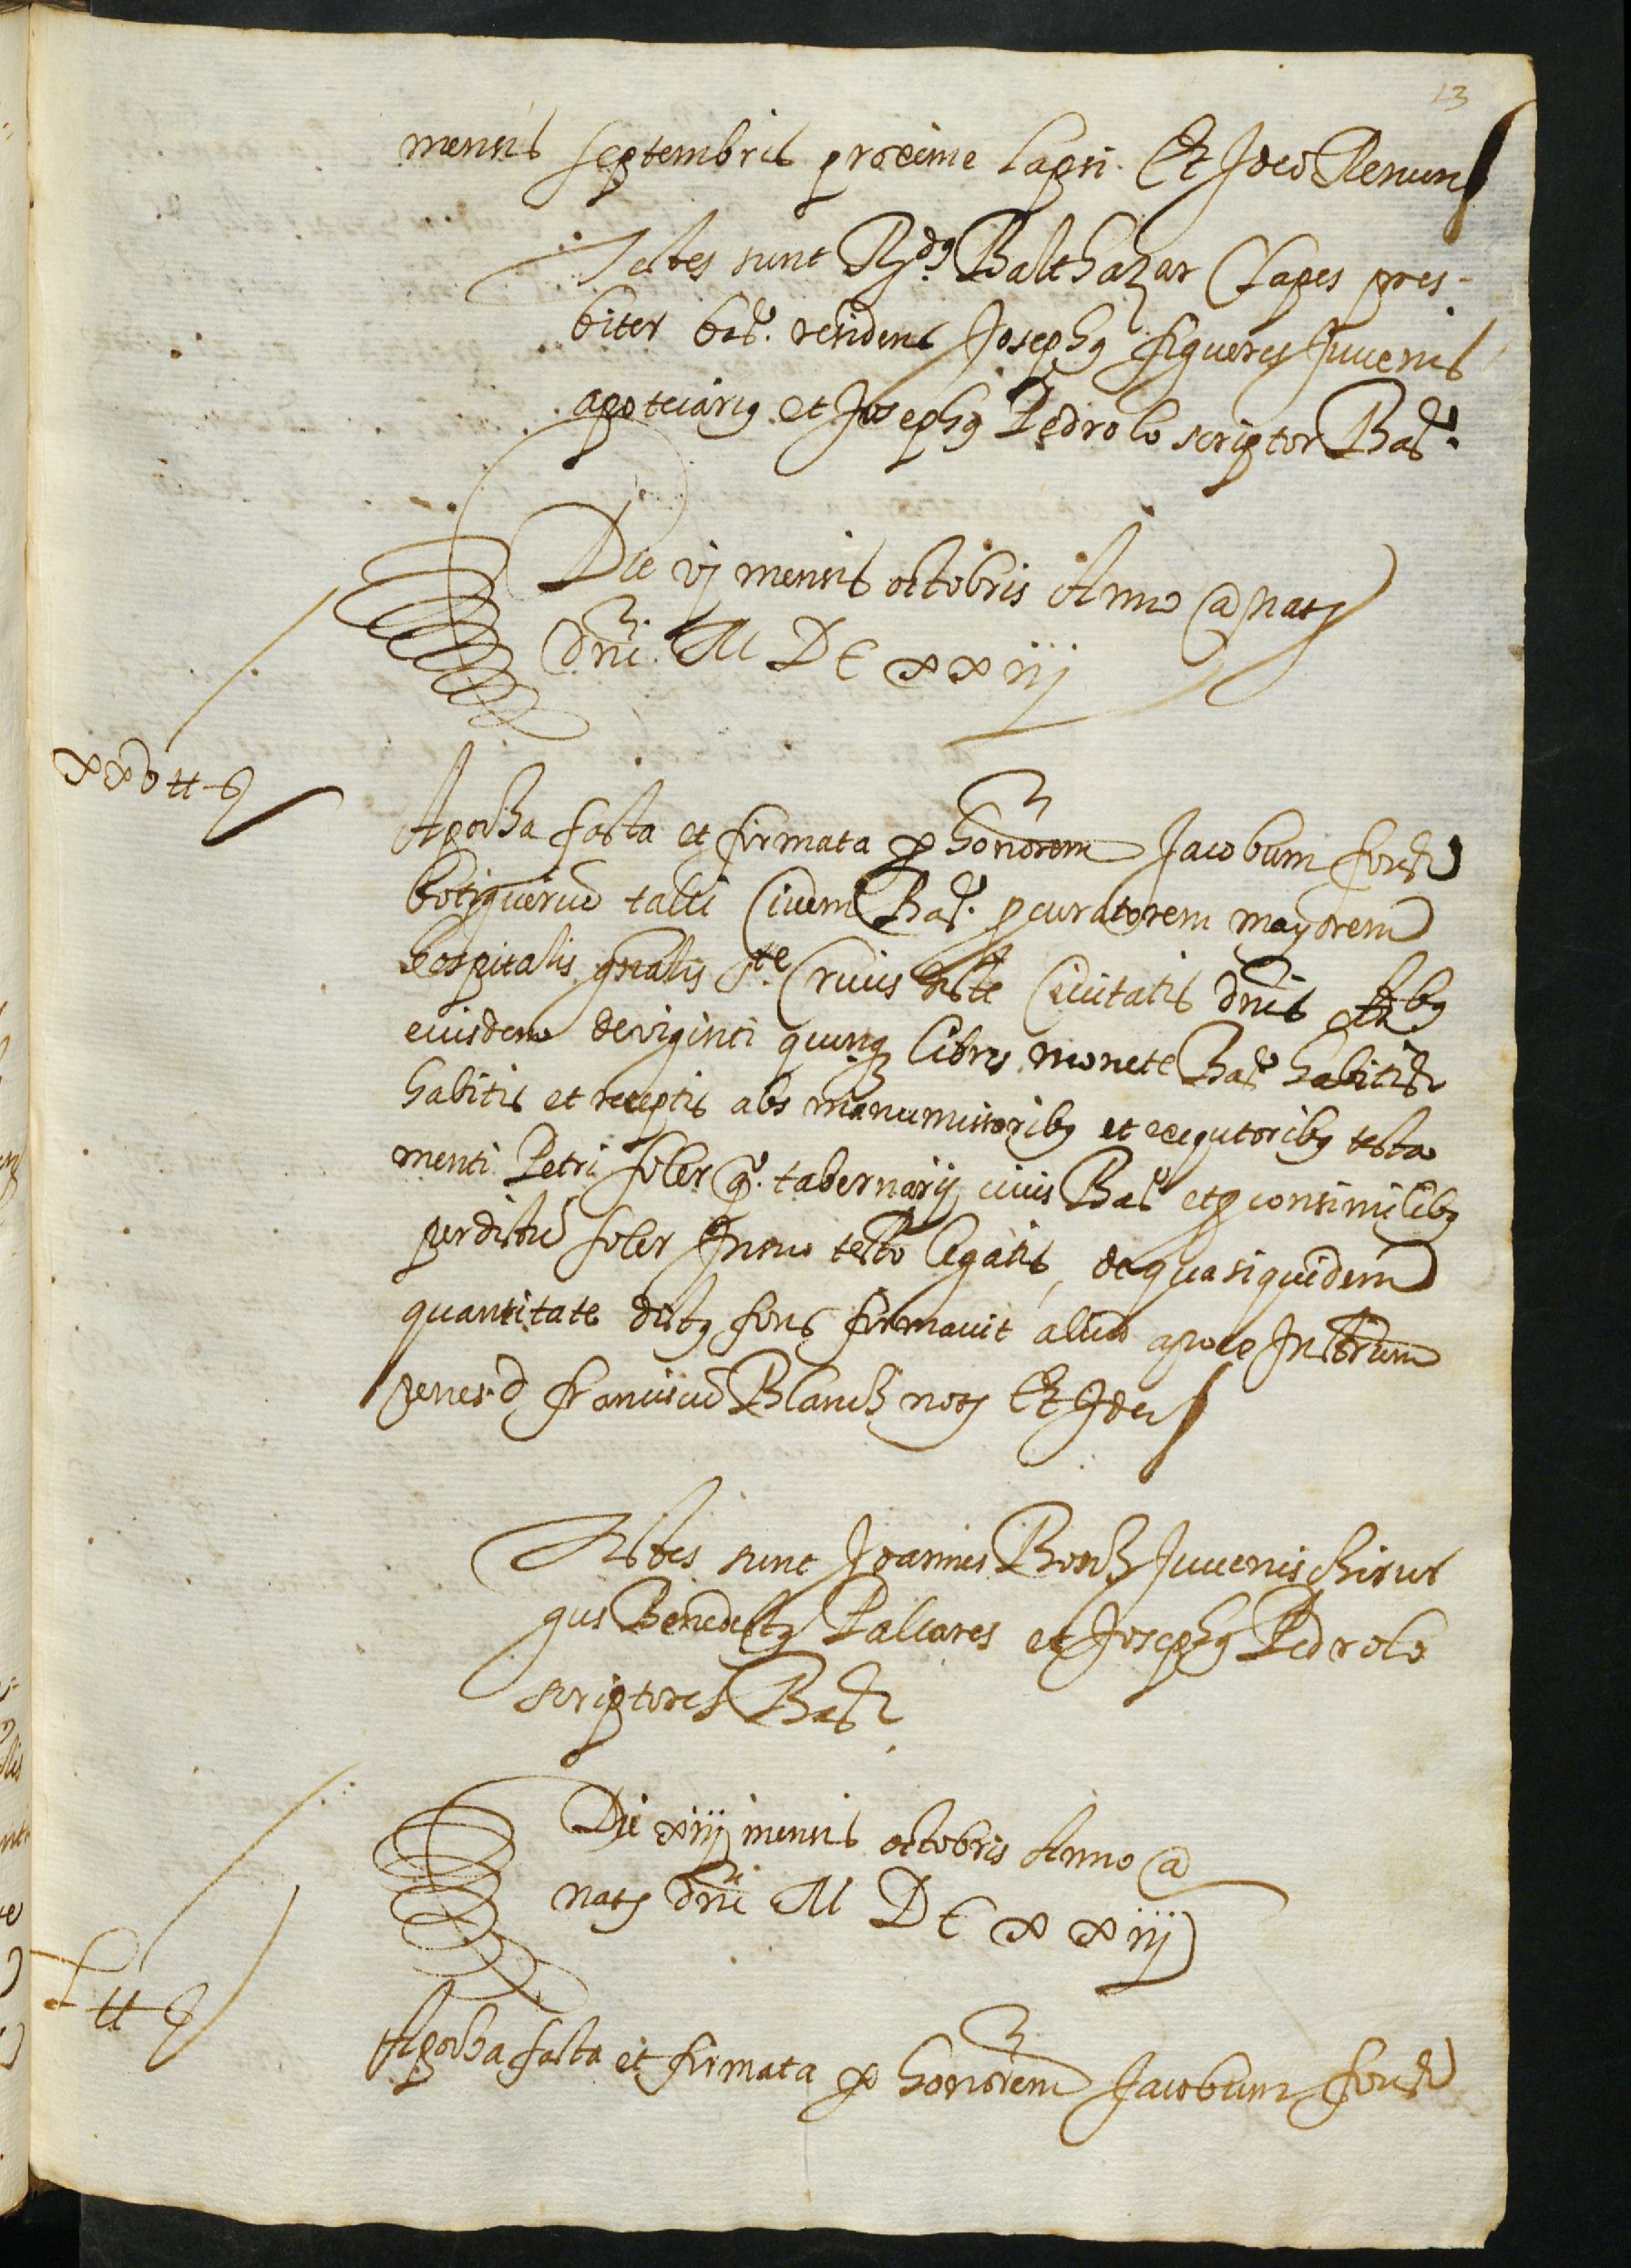 13
mensis septembris proxime lapsi. Et Ideo Renun
Testes sunt R.dus Balthazar Clapes pres-
biter bar. residens Josephus figueres Juvenis
apoteciarius et Josephus Pedrolo scriptor Bar.
Die vj mensis octobris Anno a natj
dni M DC xxiij
xxv ₶
Apocha facta et firmata per honorem Jacobum fons
botiguerium talli Civem Bar. procuratorem mayorem
hospitalis gnalis Ste Crucis ciuitatis dnis
eiusdem de viginti quinque libris monete Bar habitis
habitis et receptis abs manumissoribus et exequtoribus testa
menti Petri soler q.o tabernarij civis Bar et pro consimilibus
per dictum soler In suo testo legatis, de qua siquidem
quantitate dictus fons firmavit aliud apoce Instrum
penes d franciscum Blanch notj Et Ideo
Testes sunt Joannes Bosch Juvenis chirur
gus Benedictus Pallares et Josephus Pedrolo
scriptores Bar
Die xiiij mensis octobris Anno a
natj dni M DC xxiij
L ₶
Apocha facta et firmata per honorem Jacobum fons